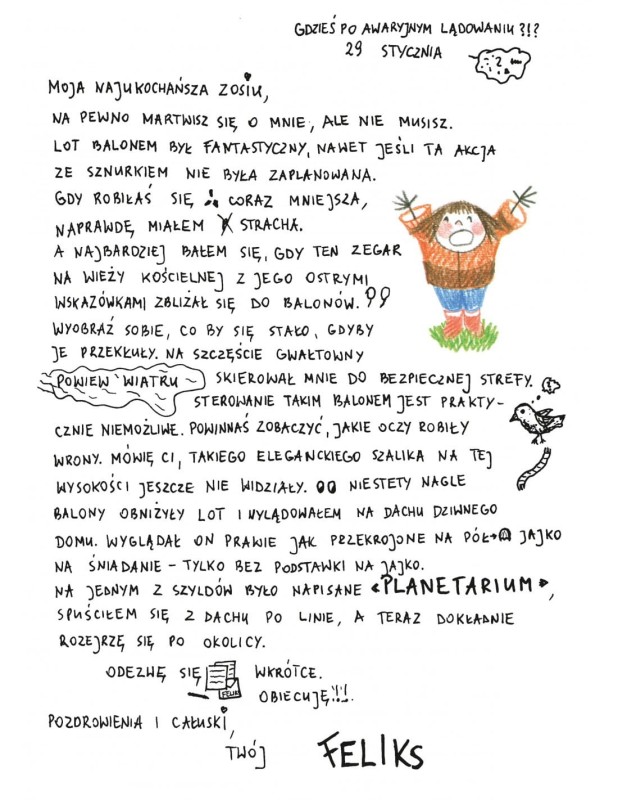 GDZIEŚ PO AWARYJNYM LĄDOWANIU ?!?
29 STYCZNIA
?
MOJA NAJUKOCHAŃSZA ZOSIU,
NA PEWNO MARTWISZ SIĘ O MNIE, ALE NIE MUSISZ.
LOT BALONEM BYŁ FANTASTYCZNY, NAWET JEŚLI TA AKCJA
ZE SZNURKIEM NIE BYŁA ZAPLANOWANA.
GDY ROBIŁAŚ SIĘ CORAZ MNIEJSZA,
NAPRAWDĘ MIAŁEM STRACHA.
A NAJBARDZIEJ BAŁEM SIĘ, GDY TEN ZEGAR
NA WIEŻY KOŚCIELNEJ Z JEGO OSTRYMI
WSKAZÓWKAMI ZBLIŻAŁ SIĘ DO BALONÓW.
WYOBRAŹ SOBIE, CO BY SIĘ STAŁO, GDYBY
JE PRZEKŁUŁY. NA SZCZĘŚCIE GWAŁTOWNY
POWIEW WIATRU SKIEROWAŁ MNIE DO BEZPIECZNEJ STREFY.
STEROWANIE TAKIM BALONEM JEST PRAKTY-
CZNIE NIEMOŻLIWE. POWINNAŚ ZOBACZYĆ, JAKIE OCZY ROBIŁY
WRONY. MÓWIĘ CI, TAKIEGO ELEGANCKIEGO SZALIKA NA TEJ
WYSOKOŚCI JESZCZE NIE WIDZIAŁY. NIESTETY NAGLE
BALONY OBNIŻYŁY LOT I WYLĄDOWAŁEM NA DACHU DZIWNEGO
DOMU. WYGLĄDAŁ ON PRAWIE JAK PRZEKROJONE NA PÓŁ JAJKO
NA ŚNIADANIE – TYLKO BEZ PODSTAWKI NA JAJKO.
NA JEDNYM Z SZYLDÓW BYŁO NAPISANE «PLANETARIUM»,
SPUŚCIŁEM SIĘ Z DACHU PO LINIE, A TERAZ DOKŁADNIE
ROZEJRZĘ SIĘ PO OKOLICY.
ODEZWĘ SIĘ WKRÓTCE.
FELIX
OBIECUJĘ!!!.
POZDROWIENIA I CAŁUSKI,
TWÓJ FELIKS